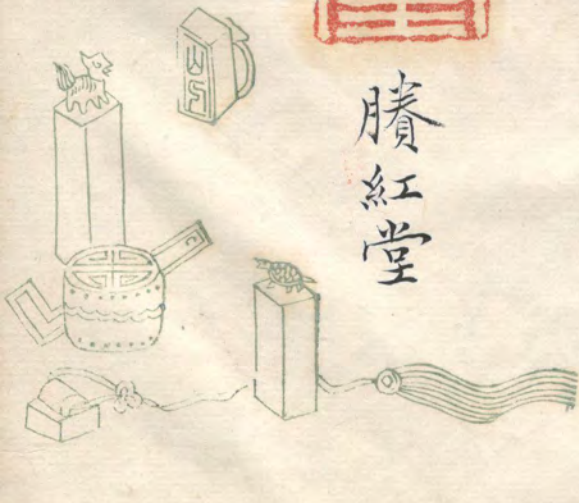 賸紅堂